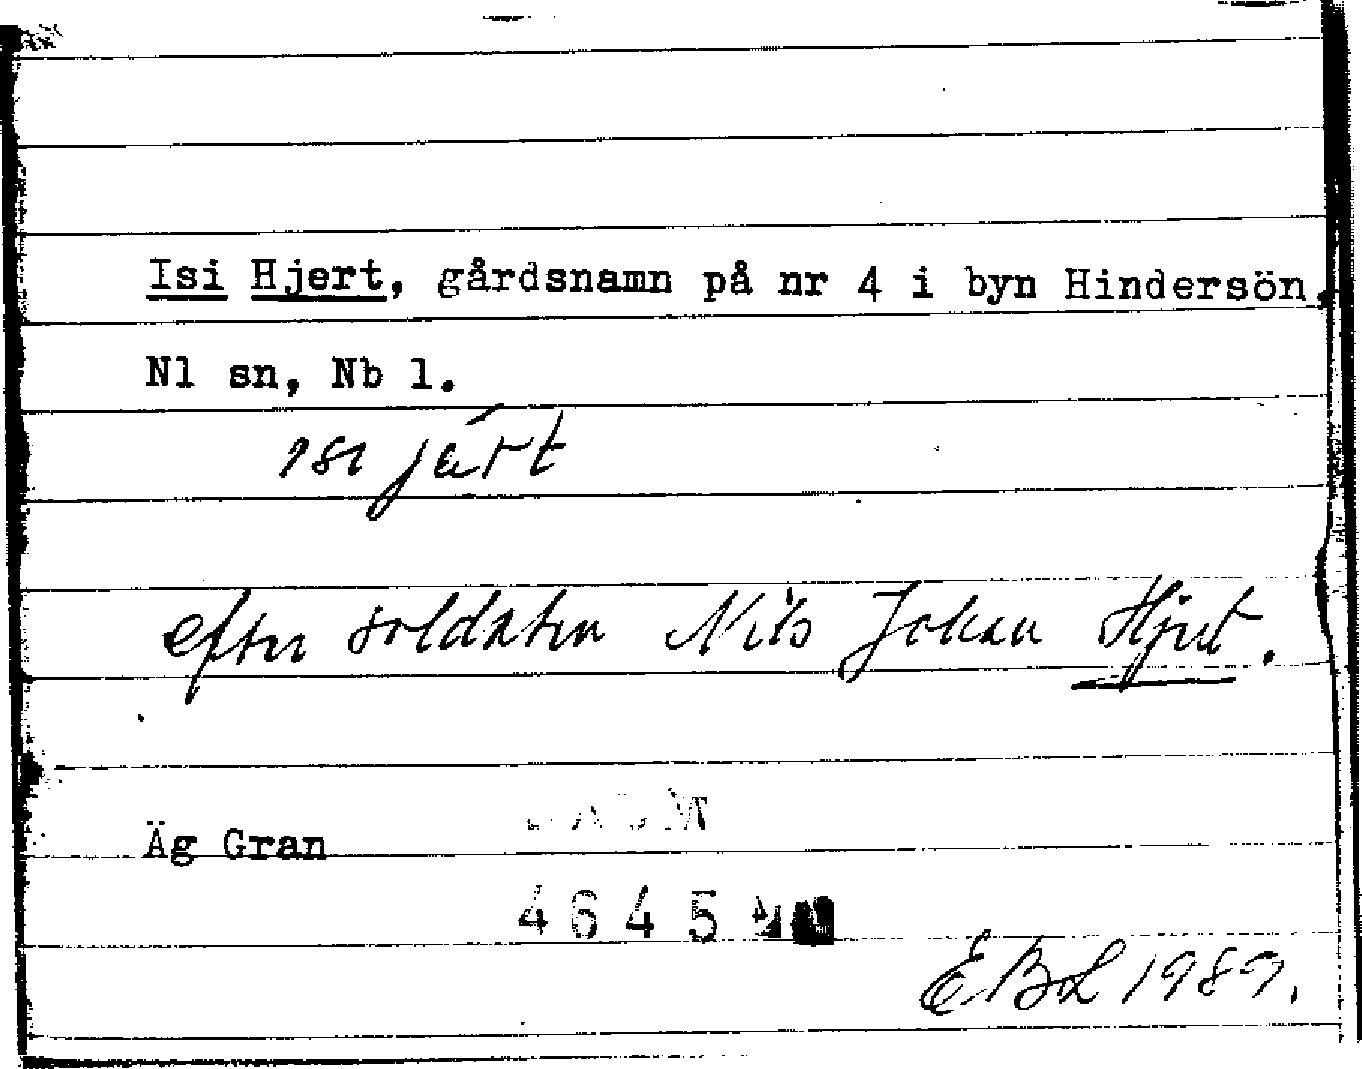 Isi Hjert, gårdsnamn på nr 4 i byn Hindersön,
Nl sn, Nb l.
isi járt
efter soldaten Nils Johan Hjert.
Äg Gran
4645
EBL 1989.